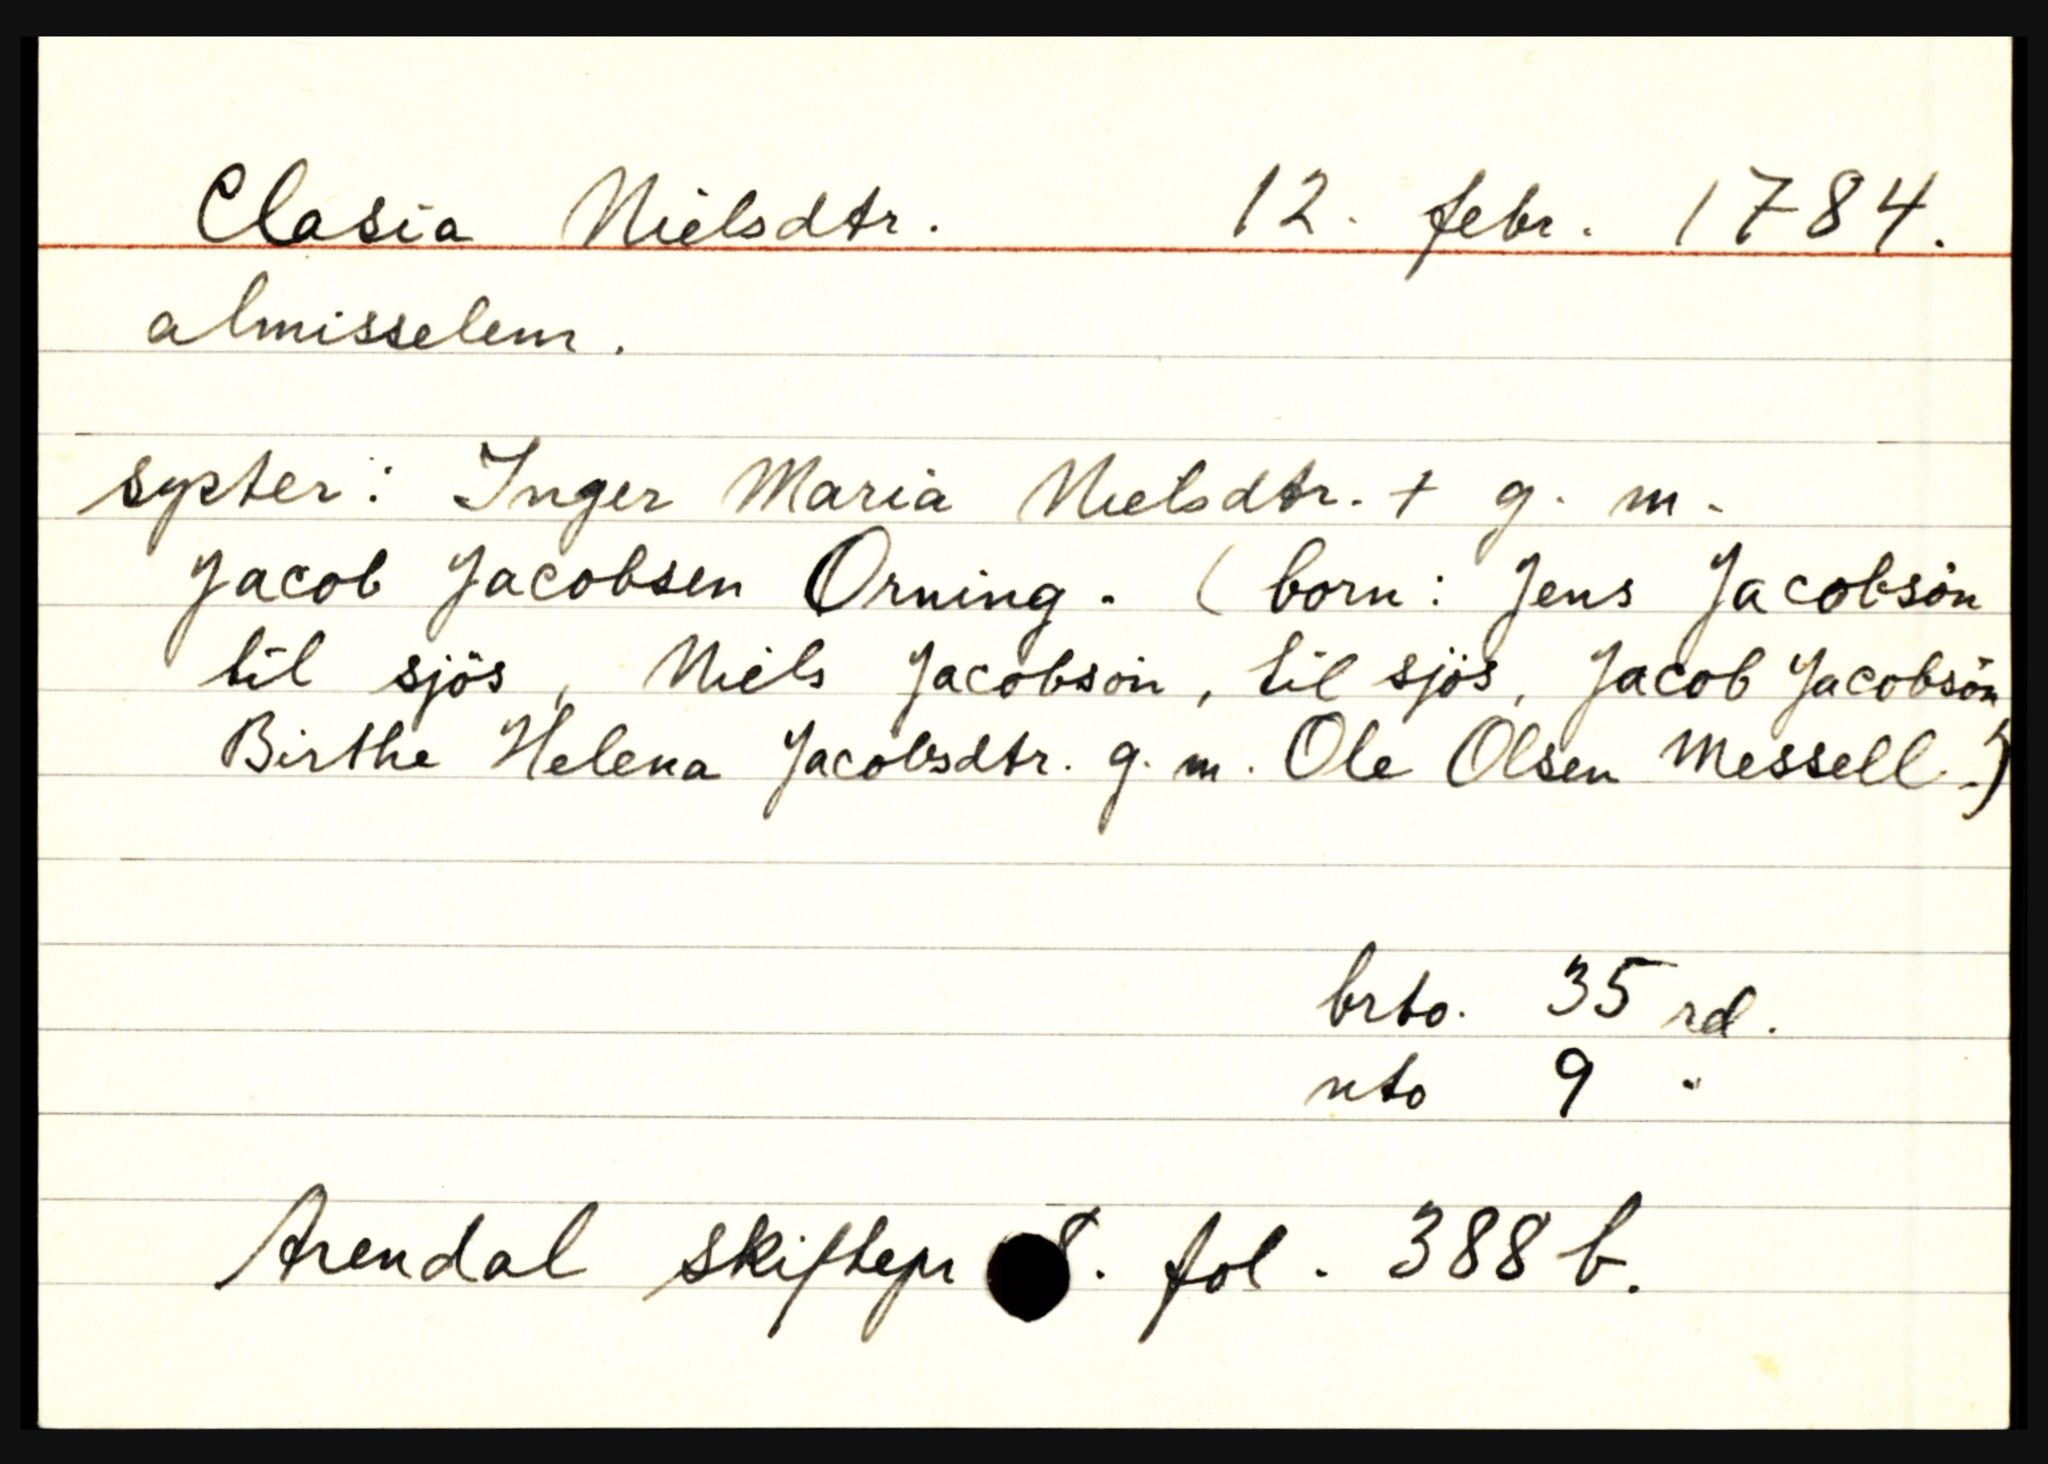 Clasia Nielsdtr. 12. febr. 1784.
almisselem.
syster: Inger Maria Nielsdtr. + g. m.
Jacob Jacobsen Orning. (born: Jens Jacobsön
til sjös, Niels Jacobsön, til sjös, Jacob Jacobsön
Birthe Helena Jacobsdtr. g. m. Ole Olsen Messell.)
brto. 35 rd.
nto 9 "
Arendal skiftepr 8. fol. 388 b.